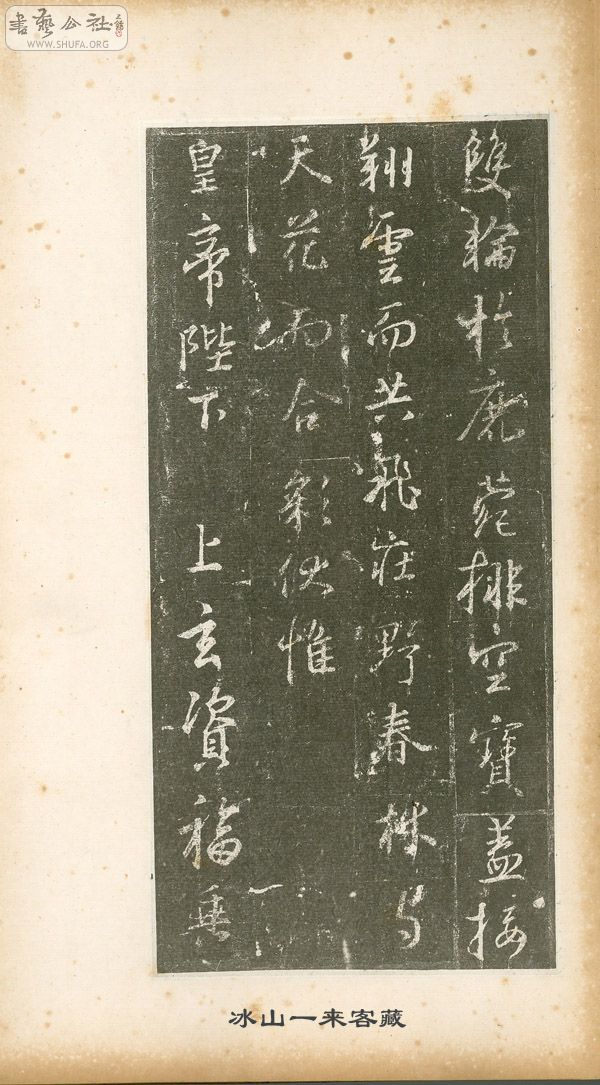 書藝公社
WWW.SHUFA.ORG
雙輪於鹿菀排空寶蓋接
翔雲而共飛莊野春林与
天花而合彩伏惟
皇帝陛下 上玄資福垂
冰山一来客藏